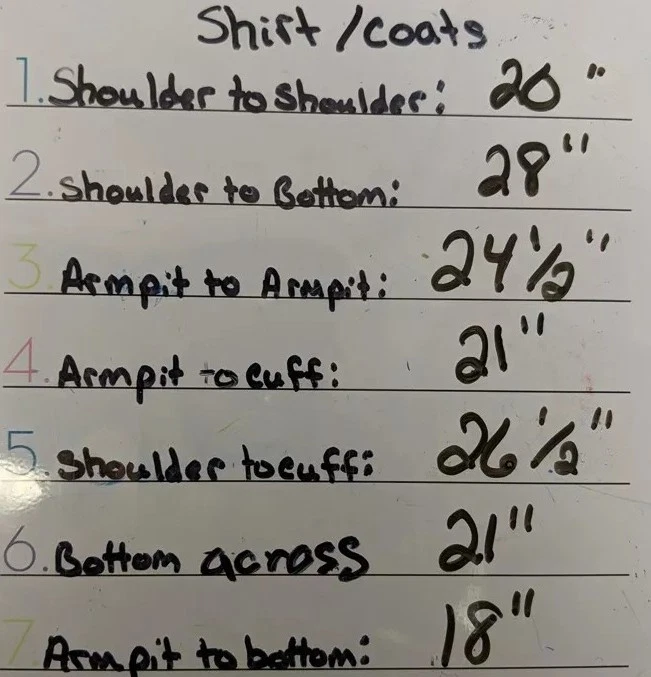 Shirt /coats
1. Shoulder to Shoulder: 20"
2. Shoulder to Bottom: 28"
3. Armpit to Armpit: 24 1/2"
4. Armpit to cuff: 21"
5. Shoulder to cuff: 26 1/2"
6. Bottom across 21"
7. Armpit to bottom: 18"